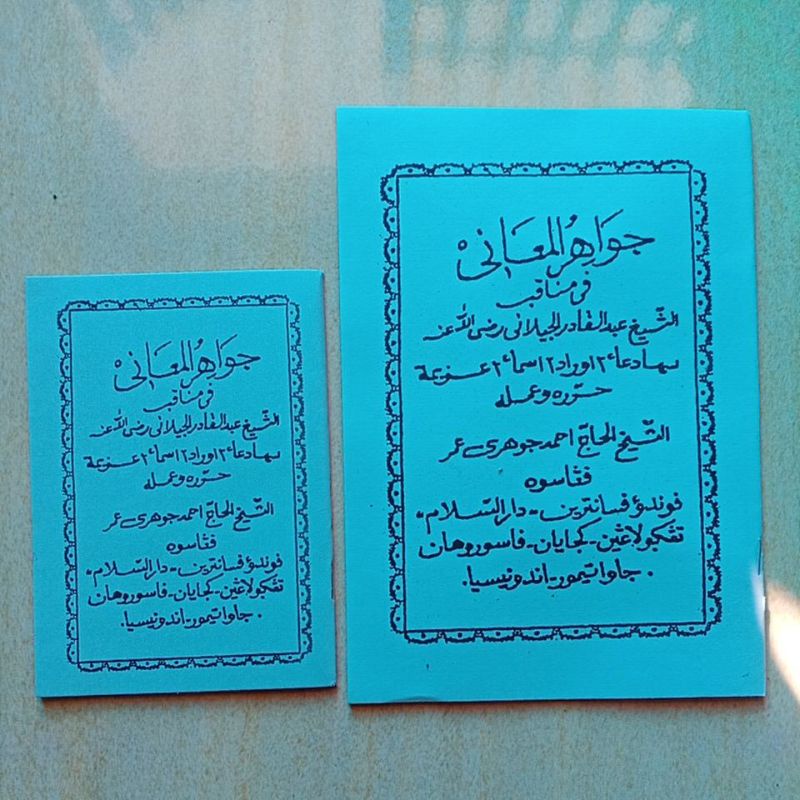 جَوَاهِرُ المَعَانِى
فى مناقب
الشّيخ عبد القادر الجيلانى رضى الله عنه
بهادعأ٢ اوراد٢ اسمأ٢ عزيمة
حرّره وعمله
الشّيخ الحاجّ احمد جوهرى عمر
فڠاسوه
فوندؤ فسانترين - دار السّلام -
تڠكولاڠين - كجايان - فاسوروهان
. جاوا تيمور - اندونيسيا .
جَوَاهِرُ المَعَانِى
فى مناقب
الشّيخ عبد القادر الجيلانى رضى الله عنه
بهادعأ٢ اوراد٢ اسمأ٢ عزيمة
حرّره وعمله
الشّيخ الحاجّ احمد جوهرى عمر
فڠاسوه
فوندؤ فسانترين - دار السّلام -
تڠكولاڠين - كجايان - فاسوروهان
. جاوا تيمور - اندونيسيا .